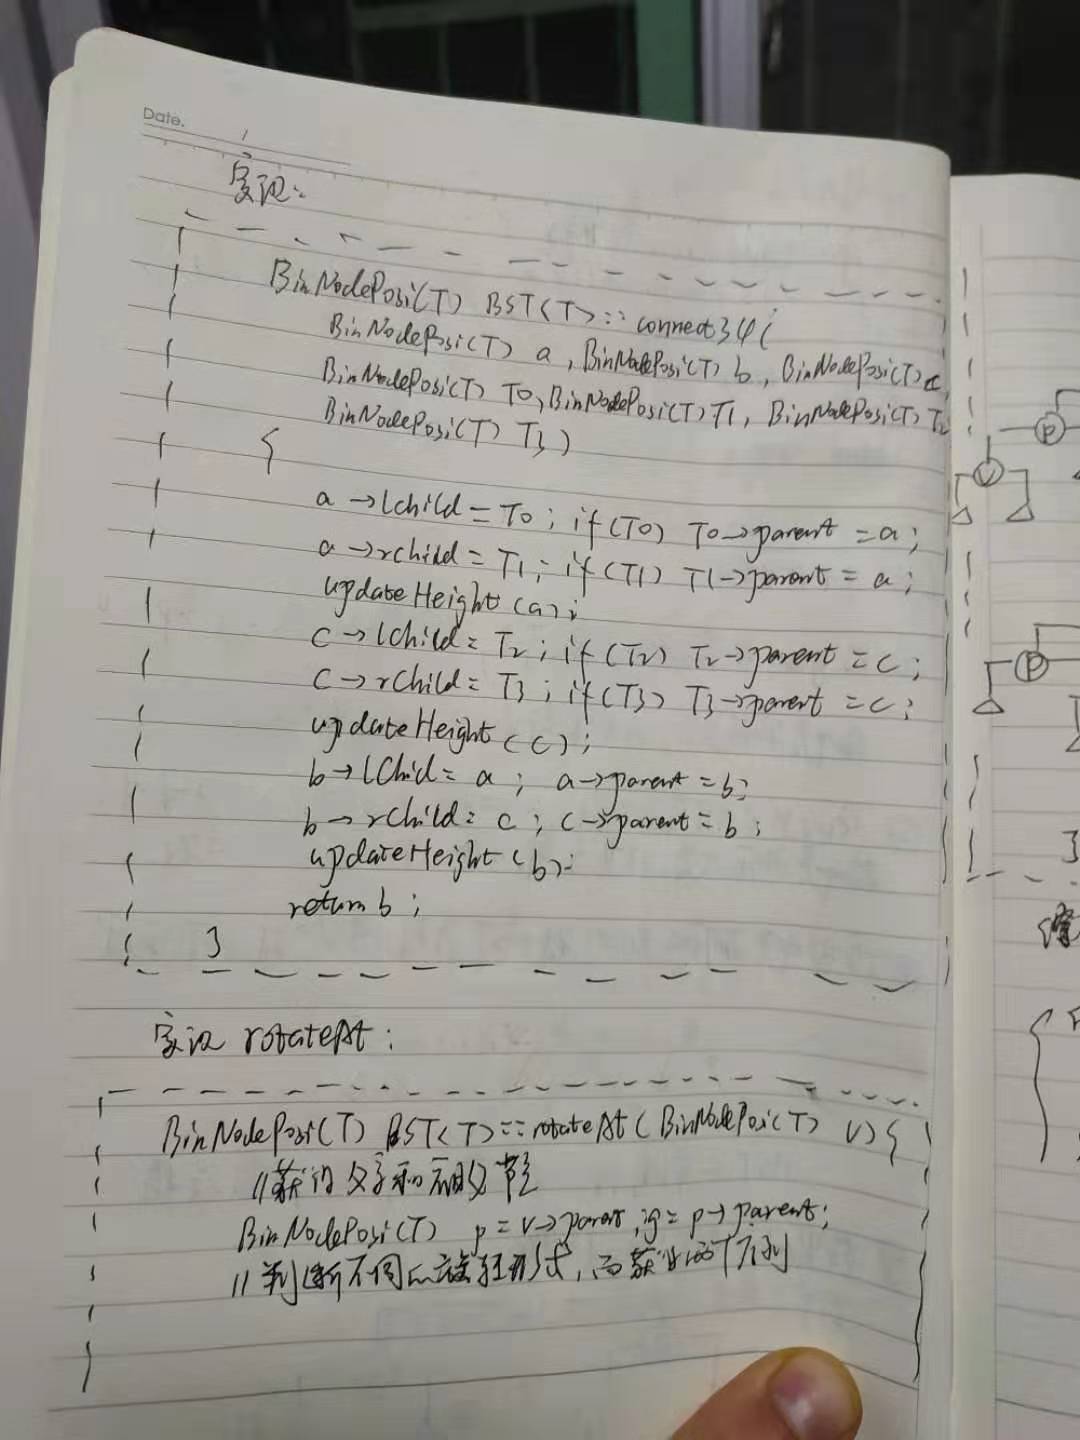 Date.
实现：
BinNodePosi(T) BST<T>::connect34(
BinNodePosi(T) a, BinNodePosi(T) b, BinNodePosi(T) c,
BinNodePosi(T) T0, BinNodePosi(T) T1, BinNodePosi(T) T2
BinNodePosi(T) T3)
{
a->lchild = T0; if(T0) T0->parent = a;
a->rchild = T1; if(T1) T1->parent = a;
updateHeight(a);
c->lchild = T2; if(T2) T2->parent = c;
c->rchild = T3; if(T3) T3->parent = c;
updateHeight(c);
b->lChid = a; a->parent = b;
b->rchild = c; c->parent = b;
updateHeight(b);
return b;
}
实现 rotateAt:
BinNodePosi(T) BST<T>::rotateAt(BinNodePosi(T) v){
//获得父子和祖父节点
BinNodePosi(T) p = v->parent, g = p->parent;
//判断不同的旋转形式,而获 序列
P
V
P